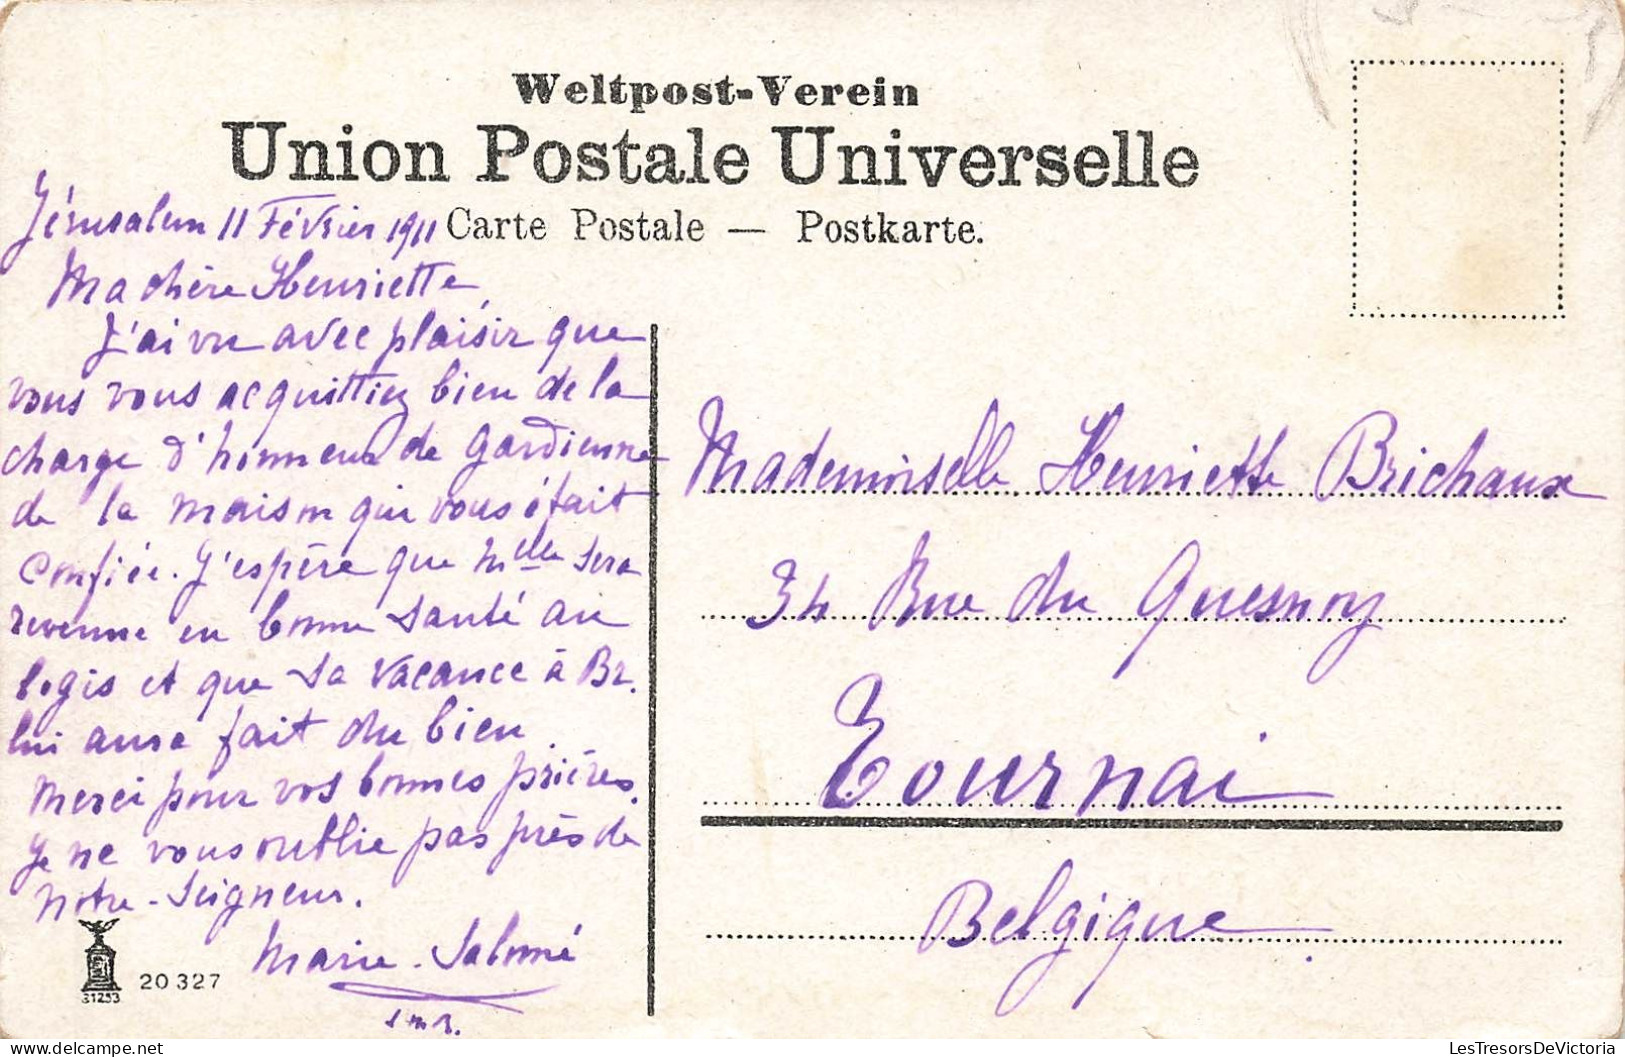 Weltpost-Verein
Union Postale Universelle
Carte Postale — Postkarte.
Jérusalem 11 Février 1911
Ma chère Henriette,
J'ai vu avec plaisir que
vous vous acquittiez bien de la
charge d'honneur de gardienne
de la maison qui vous était
confiée. J'espère que Mlle sera
revenue en bonne santé au
logis et que sa vacance à Br.
lui aura fait du bien.
Merci pour vos bonnes prières.
Je ne vous oublie pas près de
Notre-Seigneur.
Marie-Salomé
20 327
31253
Mademoiselle Henriette Brichaux
34 Rue du Quesnoy
Tournai
Belgique
LesTresorsDeVictoria